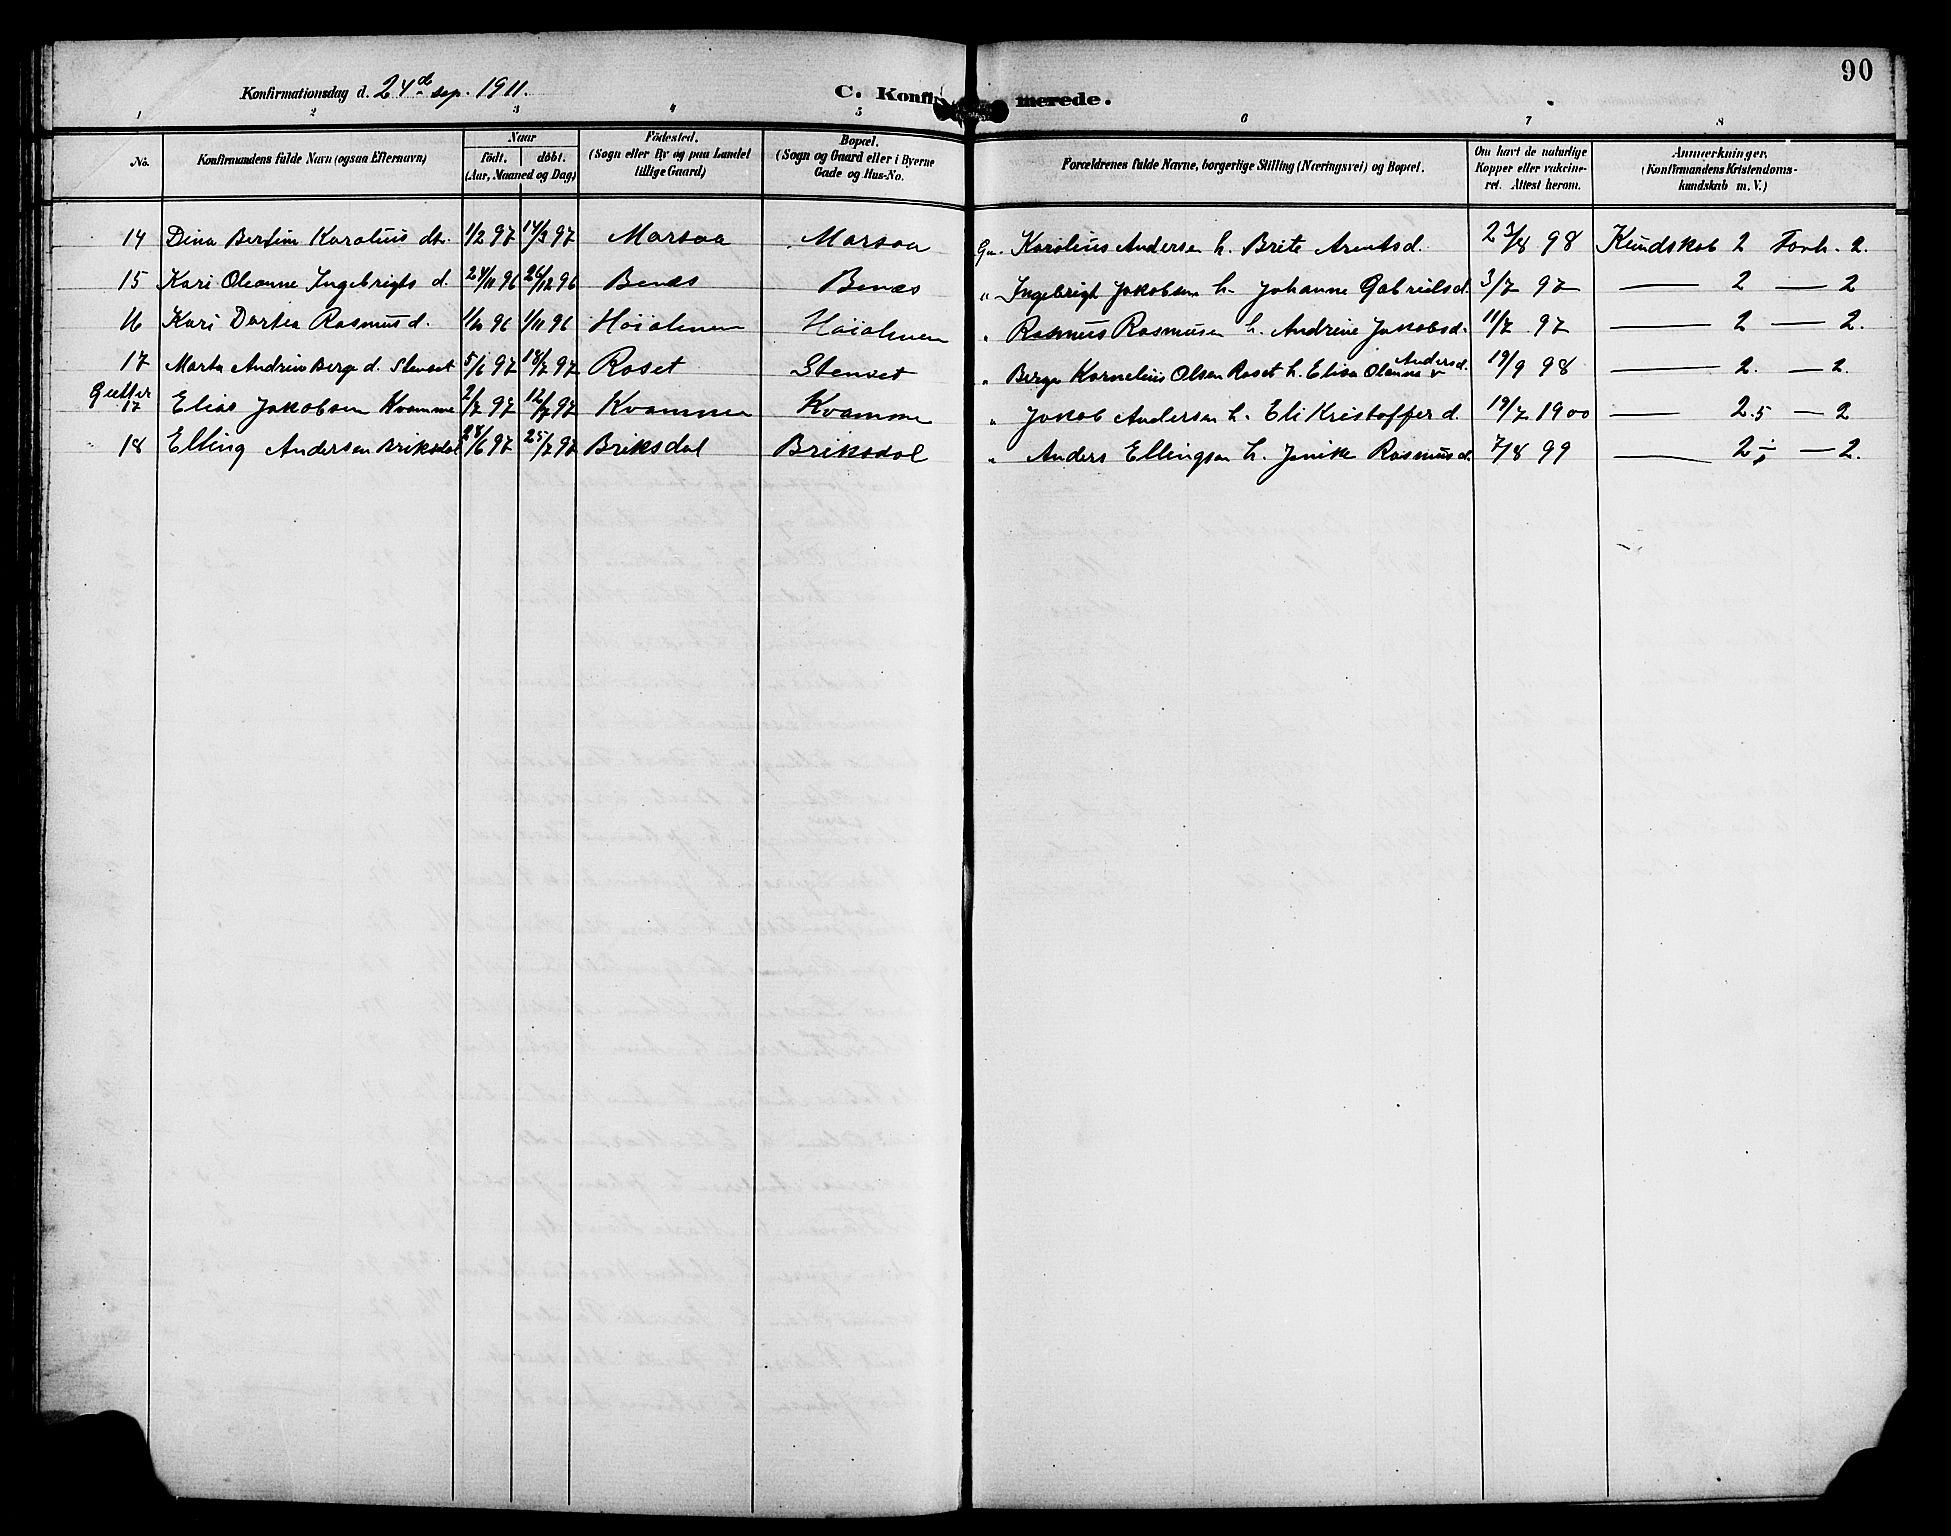 90
Konfirmationsdag d. 24d sep. 1911.
C. Konfirmerede.
1 2 3 4 5 6 7 8
No. Konfirmandens fulde Navn (ogsaa Efternavn) Naar født. døbt. (Aar, Maaned og Dag) Fødested. (Sogn eller By og paa Landet tillige Gaard) Bopæl. (Sogn og Gaard eller i Byerne Gade og Hus-No. Forældrenes fulde Navne, borgerlige Stilling (Næringsvei) og Bopæl. Om havt de naturlige Kopper eller vakcineret. Attest herom. Anmærkninger. (Konfirmandens Kristendomskundskab m. V.)
14 Dina Bertine Karolius dtr. 1/2 97 14/3 97 Marsaa Marsaa Gm. Karolius Andersen h. Brite Arntsd. 23/8 98 Kundskab 2 Forh. 2.
15 Kari Oleanne Ingebrigts d. 24/11 96 26/12 96 Benæs Benæs " Ingebrigt Jakobsen h. Johanne Gabrielsd. 3/7 97 — 2 — 2
16 Kari Dortea Rasmusd. 1/10 96 1/11 96 Høialmen Høialmen " Rasmus Rasmusen h. Andrine Jakobsd. 11/7 97 — 2 — 2.
17 Marta Andrine Berge d. Stenset 5/6 97 18/7 97 Roset Stenset " Berge Kornelius Olsen Roset h. Elisa Oleanna Andersd. 19/9 98 — 2. — 2.
Gutter
17 Elias Jakobsen Kvamme 2/7 97 12/7 97 Kvammen Kvamme " Jakob Andersen h. Eli Kristoffer d. 19/7 1900 — 2.5 — 2
18 Elling Andersen Briksdal 28/6 97 25/7 97 Briksdal Briksdal " Anders Ellingsen h. Jenike Rasmusd. 7/8 99 — 2 ÷ — 2.